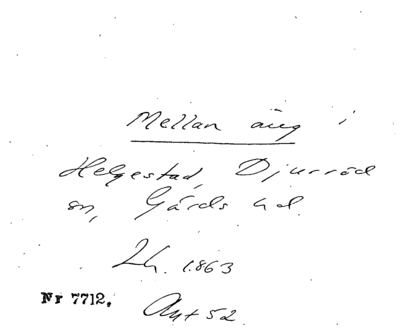 Mellan äng i
Helgestad, Djurröd
sn, Gärds hd.
Lh. 1863
Nr 7712.
Ant 52